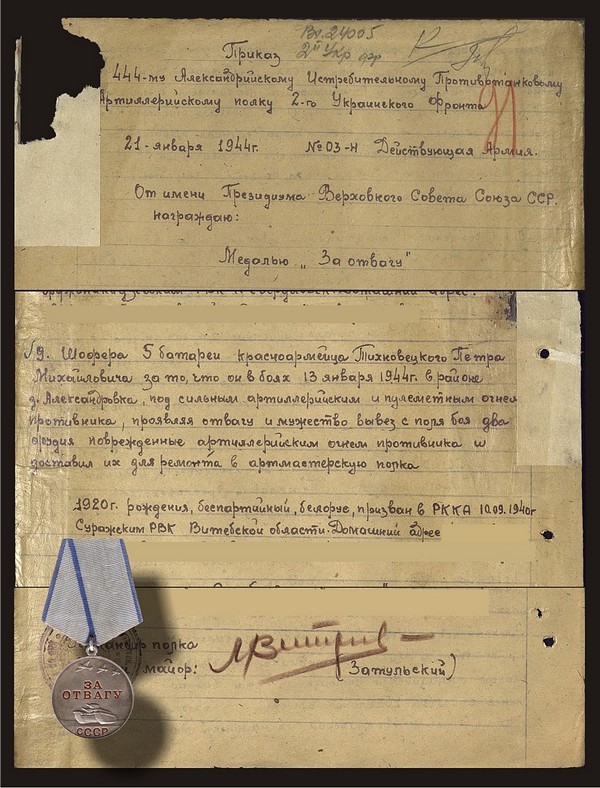 Вх. 24005
2й Укр фр
Приказ
444-му Александрийскому Истребительному Противотанковому
Артиллерийскому полку 2-го Украинского Фронта
21-января 1944г. №03-Н Действующая Армия.
От имени Президиума Верховного Совета Союза ССР.
награждаю:
Медалью „За отвагу"
9. Шофера 5 батареи красноармейца Тихновецкого Петра
Михайловича за то, что он в боях 13 января 1944г. в районе
д. Александровка, под сильным артиллерийским и пулеметным огнем
противника, проявляя отвагу и мужество вывез с поля боя два
орудия поврежденные артиллерийским огнем противника и
доставил их для ремонта в артмастерскую полка
1920г. рождения, беспартийный, белорус, призван в РККА 10.09.1940г
Суражским РВК Витебской области. Домашний адрес
полка
майор: (Затульский)
ЗА
ОТВАГУ
СССР